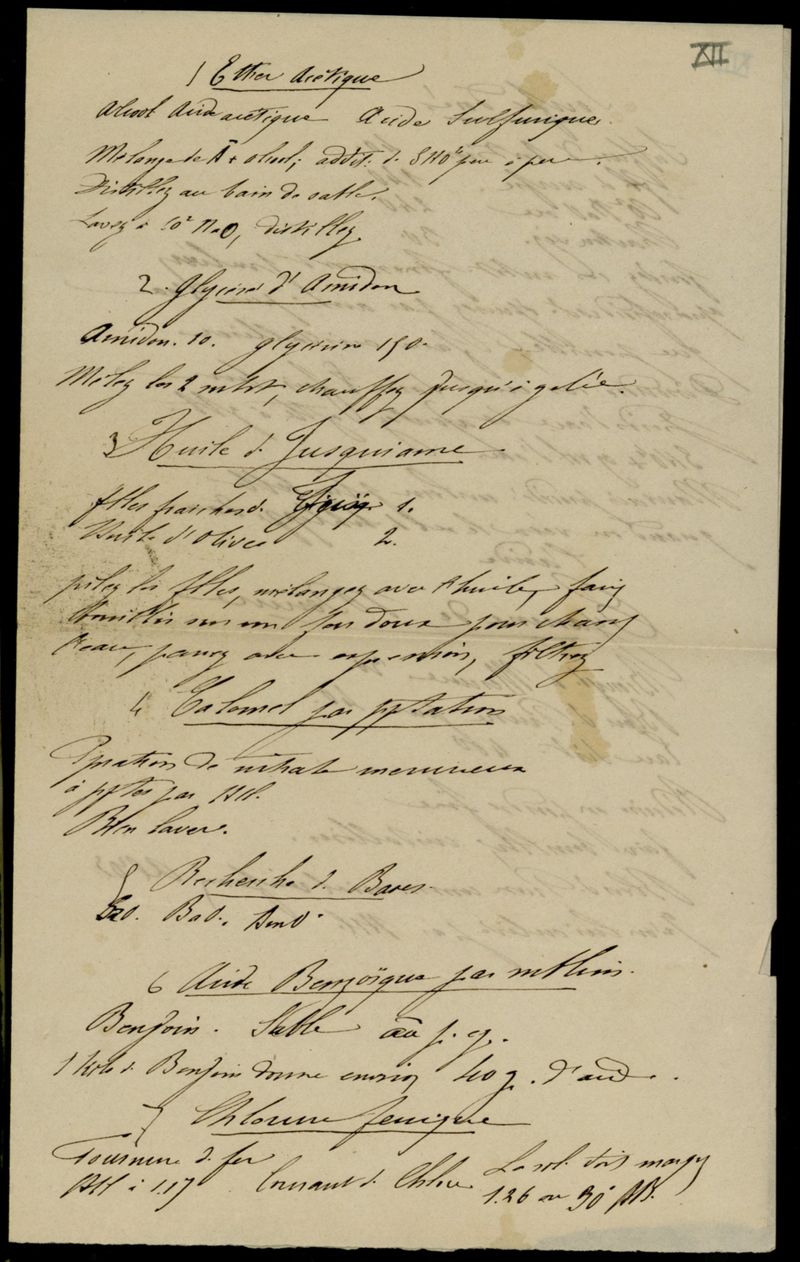 XII
1 Ether Acétique
Alcool Acide acétique Acide Sulfurique
Mélange de Ā + alcool; addit. d. SHO⁴ peu à peu.
Distillez au bain de sable.
Lavez à NaO, distillez
2. Glycéré d'Amidon
Amidon. 10. glycérine 150.
Mêlez les 2 chauffez jusqu'à gelée.
3 Huile d. Jusquiame
flles fraiches d. Jusq. 1.
Huile d'olives 2.
pilez les flles, mélangez avec l'huile, faire
bouillir sur un feu doux pour chasser
l'eau, passez avec expression, filtrez
4 Calomel par pptation
Pparation de nitrate mercureux
à ppter par HCl.
Bien laver.
5 Recherche d. Bases
BaO.
6 Acide Benzoïque par
Benjoin. Sable āā p. eg.
1 kilo d. Benjoin donne environ 40 g. d'acide.
7 Chlorure ferrique
Tournure d. fer
HCl à 1.17 Courant d. Chlore La sol. doit marquer
1.26 ou 30° AB.